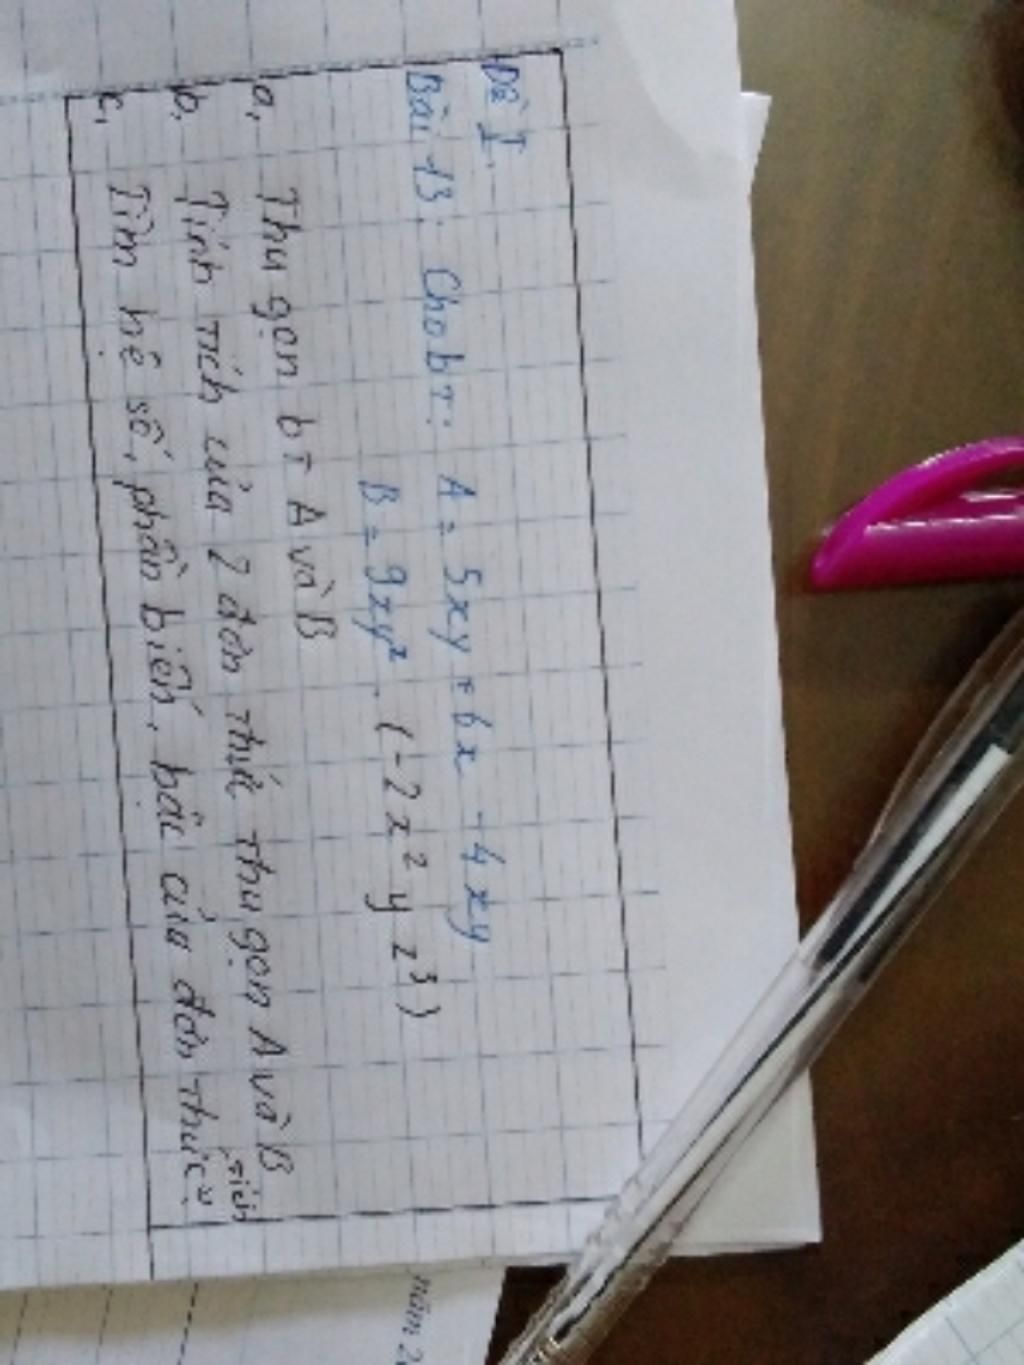 Đề I.
Bài 13: Cho bт: A = 5xy + 6x - 4xy
B = 9xy² . (-2x² y z³)
a, Thu gọn bт A và B
b, Tính tích của 2 đơn thức thu gọn A và B
c, Tìm hệ số, phần biến, bậc của đơn thức
năm